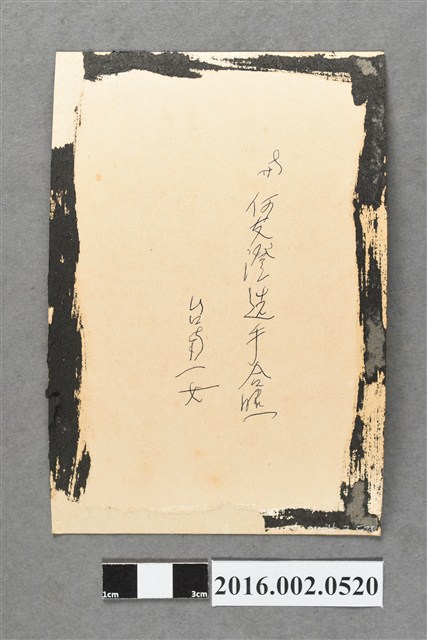 與何友澄選手合照
台南一女
1cm
3cm
2016.002.0520